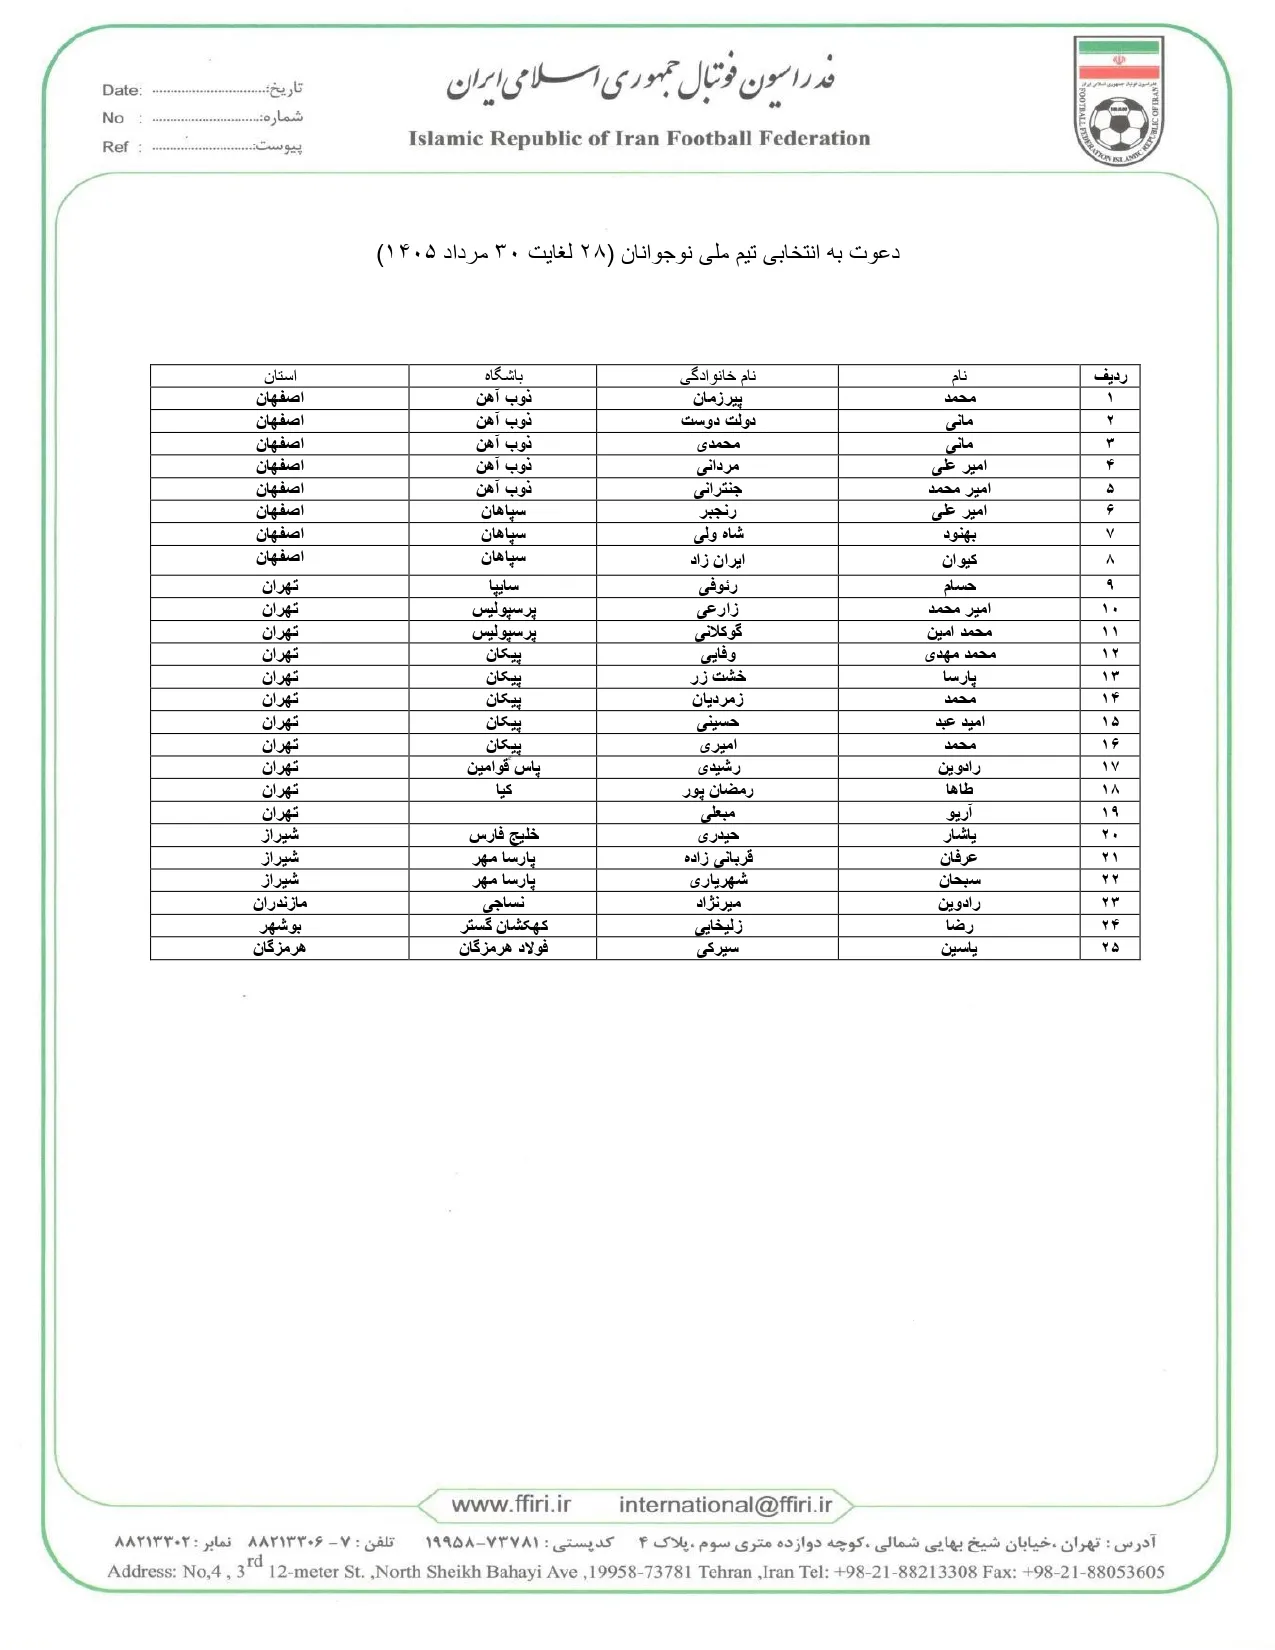 فدراسیون فوتبال جمهوری اسلامی ایران
Islamic Republic of Iran Football Federation
Date: ............................... تاریخ:
No : ............................. شماره:
Ref : ............................ پیوست:
FOOTBALL FEDERATION ISLAMIC REPUBLIC OF IRAN
دعوت به انتخابی تیم ملی نوجوانان (۲۸ لغایت ۳۰ مرداد ۱۴۰۵)
ردیف نام نام خانوادگی باشگاه استان
۱ محمد پیرزمان ذوب آهن اصفهان
۲ مانی دولت دوست ذوب آهن اصفهان
۳ مانی محمدی ذوب آهن اصفهان
۴ امیر علی مردانی ذوب آهن اصفهان
۵ امیر محمد جنترانی ذوب آهن اصفهان
۶ امیر علی رنجبر سپاهان اصفهان
۷ بهنود شاه ولی سپاهان اصفهان
۸ کیوان ایران زاد سپاهان اصفهان
۹ حسام رئوفی سایپا تهران
۱۰ امیر محمد زارعی پرسپولیس تهران
۱۱ محمد امین گوکلانی پرسپولیس تهران
۱۲ محمد مهدی وفایی پیکان تهران
۱۳ پارسا خشت زر پیکان تهران
۱۴ محمد زمردیان پیکان تهران
۱۵ امید عبد حسینی پیکان تهران
۱۶ محمد امیری پیکان تهران
۱۷ رادوین رشیدی پاس قوامین تهران
۱۸ طاها رمضان پور کیا تهران
۱۹ آریو مبعلی تهران
۲۰ یاشار حیدری خلیج فارس شیراز
۲۱ عرفان قربانی زاده پارسا مهر شیراز
۲۲ سبحان شهریاری پارسا مهر شیراز
۲۳ رادوین میرنژاد نساجی مازندران
۲۴ رضا زلیخایی کهکشان گستر بوشهر
۲۵ یاسین سیرکی فولاد هرمزگان هرمزگان
www.ffiri.ir international@ffiri.ir
آدرس : تهران ،خیابان شیخ بهایی شمالی ،کوچه دوازده متری سوم ،پلاک ۴ کدپستی : ۷۳۷۸۱–۱۹۹۵۸ تلفن : ۷ – ۸۸۲۱۳۳۰۶ نمابر : ۸۸۲۱۳۳۰۲
Address: No,4 , 3rd 12-meter St. ,North Sheikh Bahayi Ave ,19958-73781 Tehran ,Iran Tel: +98-21-88213308 Fax: +98-21-88053605